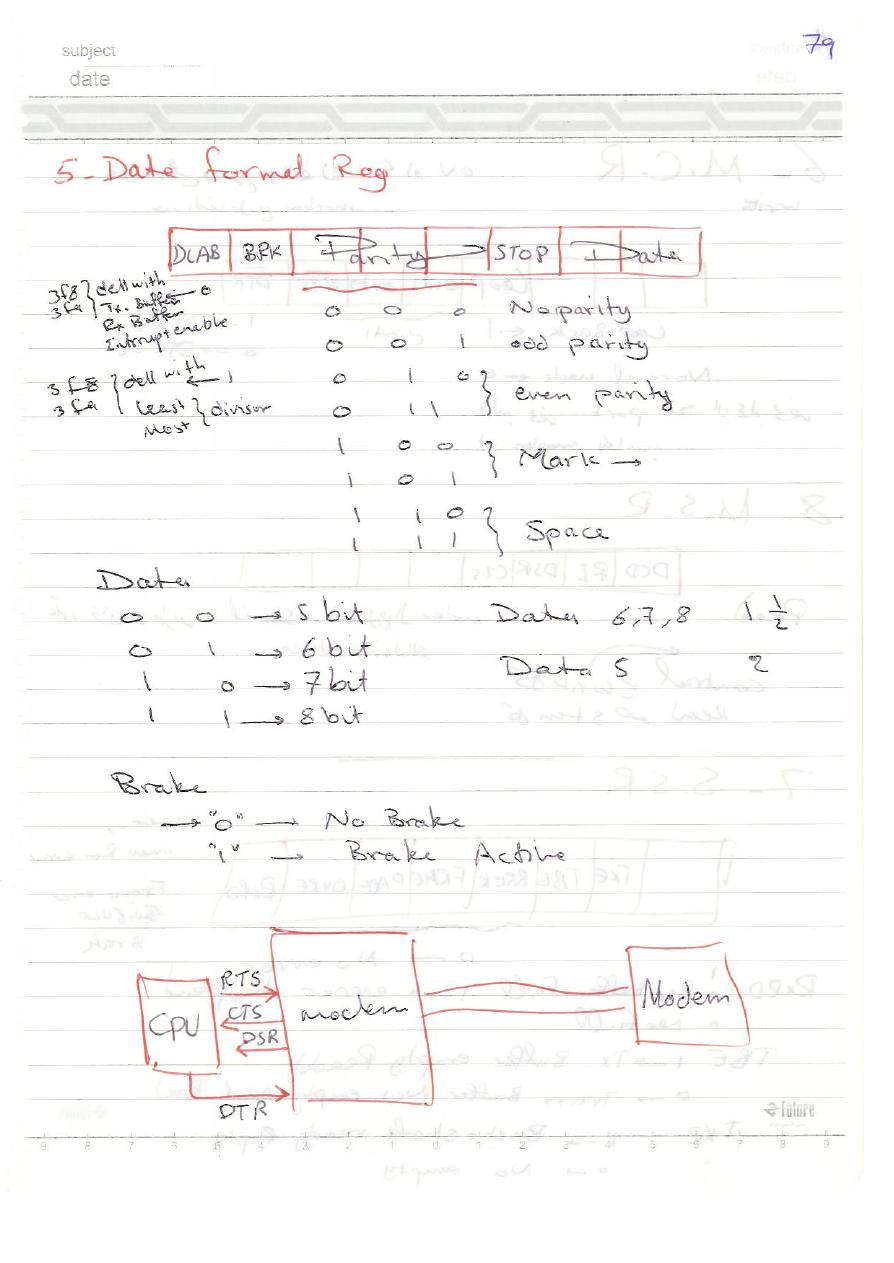 subject
79
date
5- Date formal Reg
DLAB BRK Parity STOP Data
3f8 } dell with
3fa Tx. Buffer ← 0
Rx Buffer
Intrrupt enable
0 0 0 No parity
0 0 1 odd parity
3f8 } dell with ← 1
3fa Least } divisor
Most
0 1 0 } even parity
0 1 1
1 0 0 } Mark →
1 0 1
1 1 0 } Space
1 1 1
Data
0 0 → 5 bit Data 6,7,8 1 1/2
0 1 → 6 bit
1 0 → 7 bit Data 5 2
1 1 → 8 bit
Brake
→ "0" → No Brake
"1" → Brake Active
RTS
CTS
CPU modem Modem
DSR
DTR
Future
9 8 7 6 5 4 3 2 1 0 1 2 3 4 5 6 7 8 9